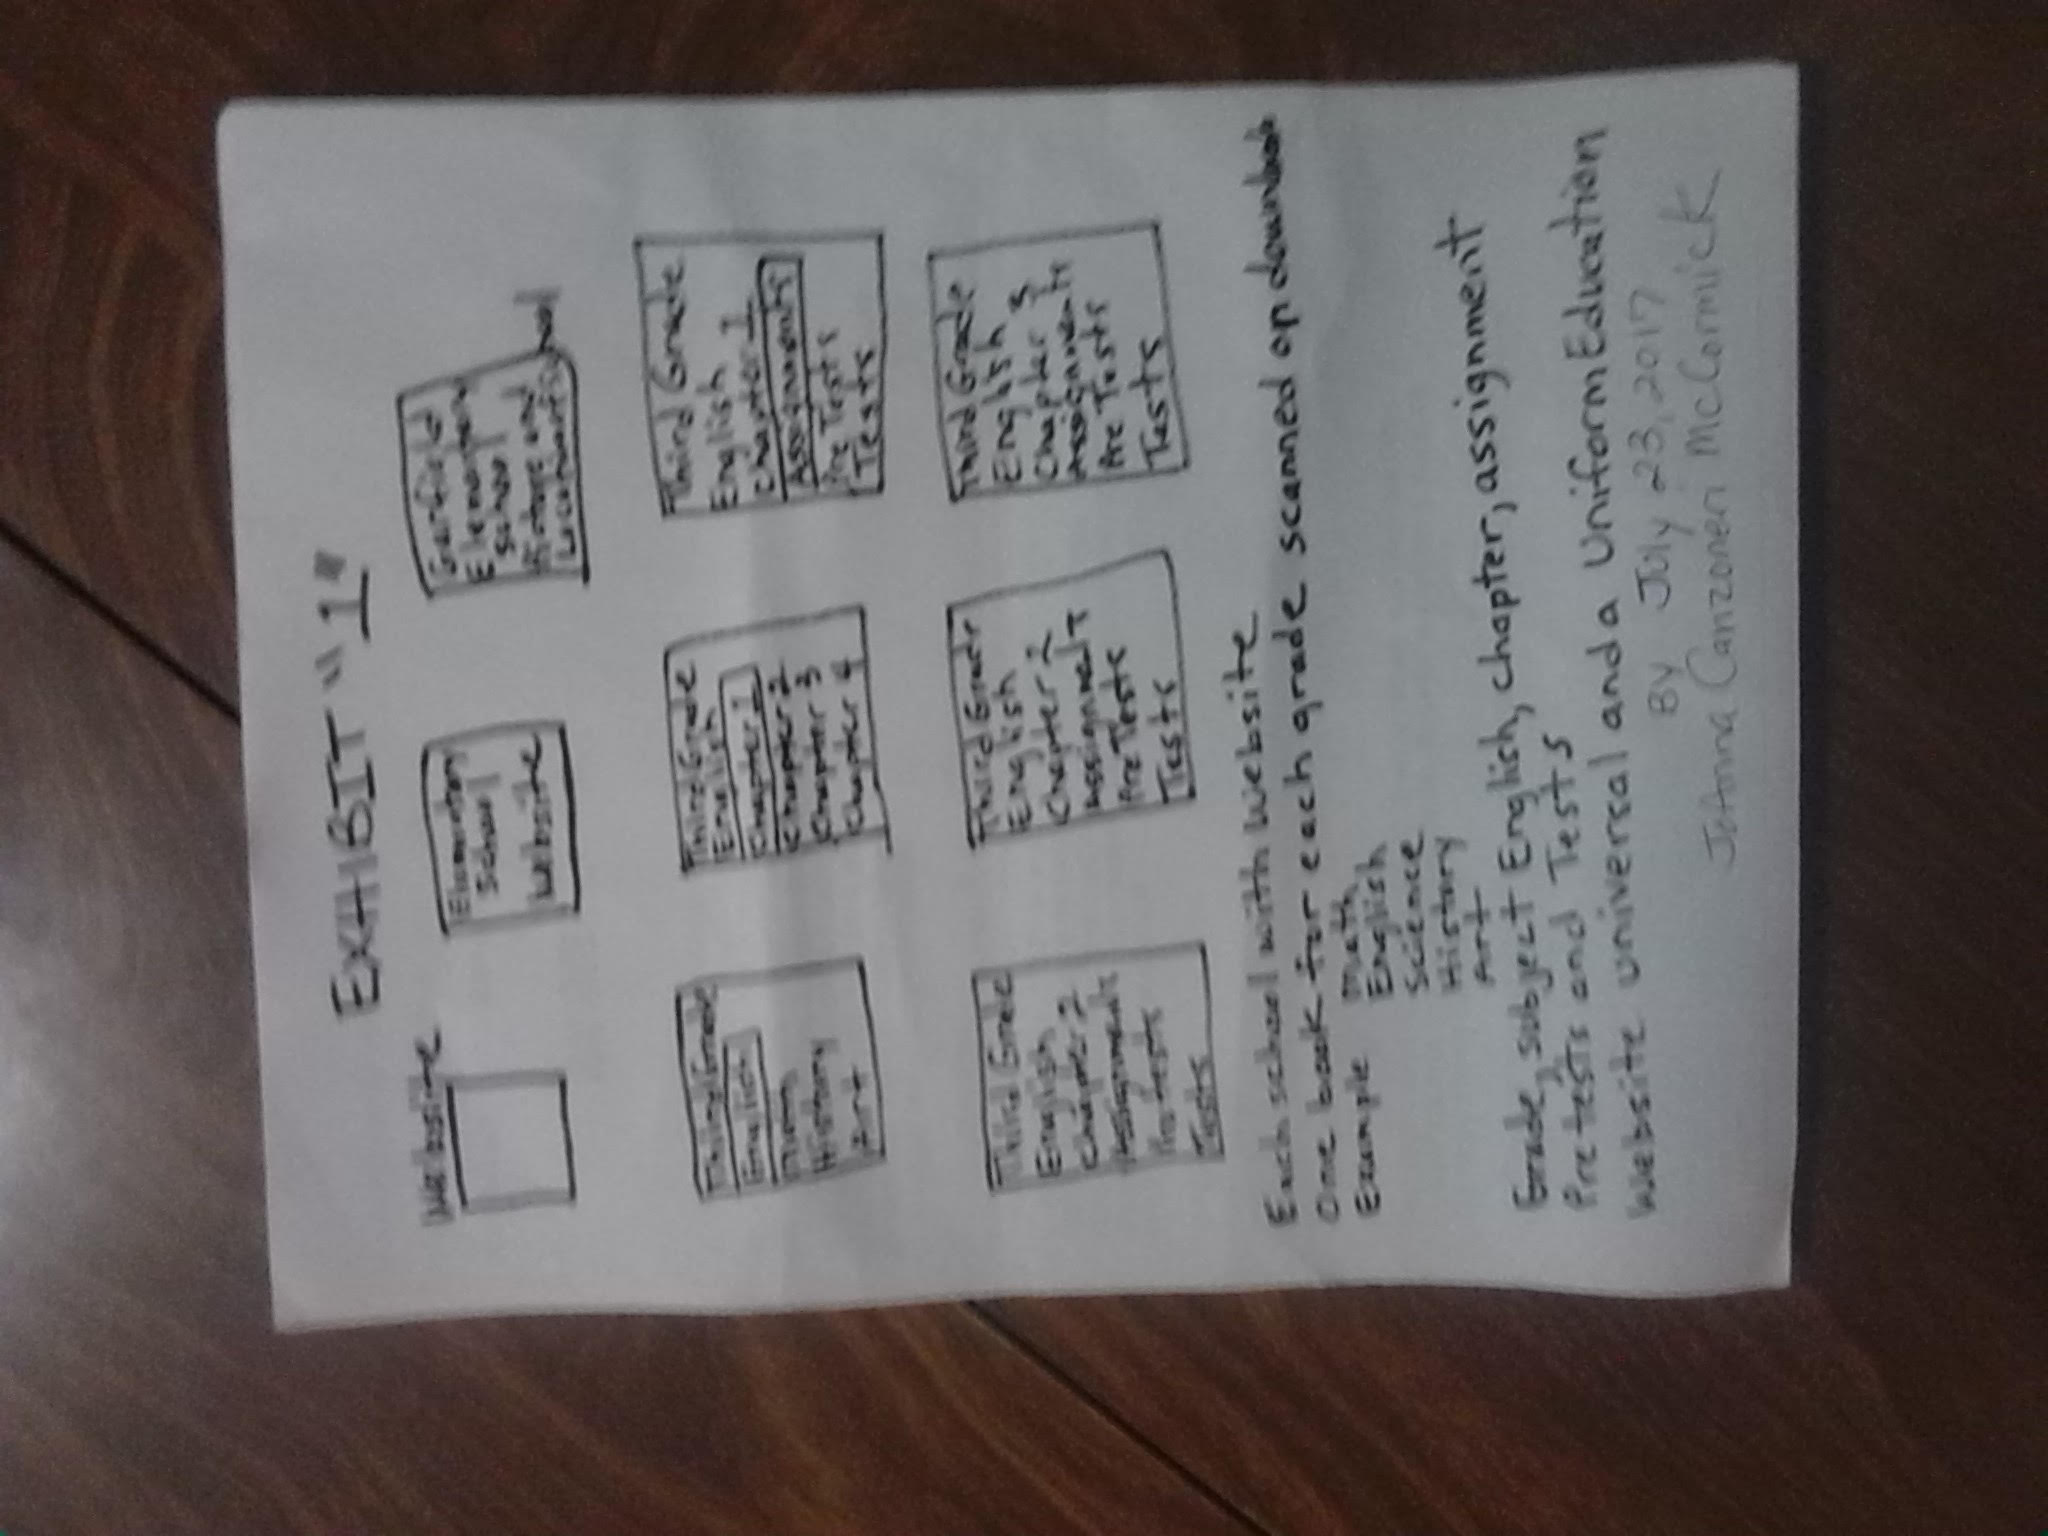 EXHIBIT "1"
Website
Elementary
School
Website
Garfield
Elementary
School
Third Grade
English
Math
History
Art
Third Grade
English
Chapter 1
Chapter 2
Chapter 3
Chapter 4
Third Grade
English
Chapter 1
Assignments
Pre Tests
Tests
Third Grade
English
Chapter 2
Assignments
Pretests
Tests
Third Grade
English
Chapter 2
Assignments
Pre Tests
Tests
Third Grade
English
Chapter 3
Assignments
Pre Tests
Tests
Each school with website
One book for each grade scanned or
Example Math
English
Science
History
Art
Grade, subject English, chapter, assignment
Pretests and Tests
Website universal and a Uniform Education
By July 23, 2017
Canzoneri McCormick